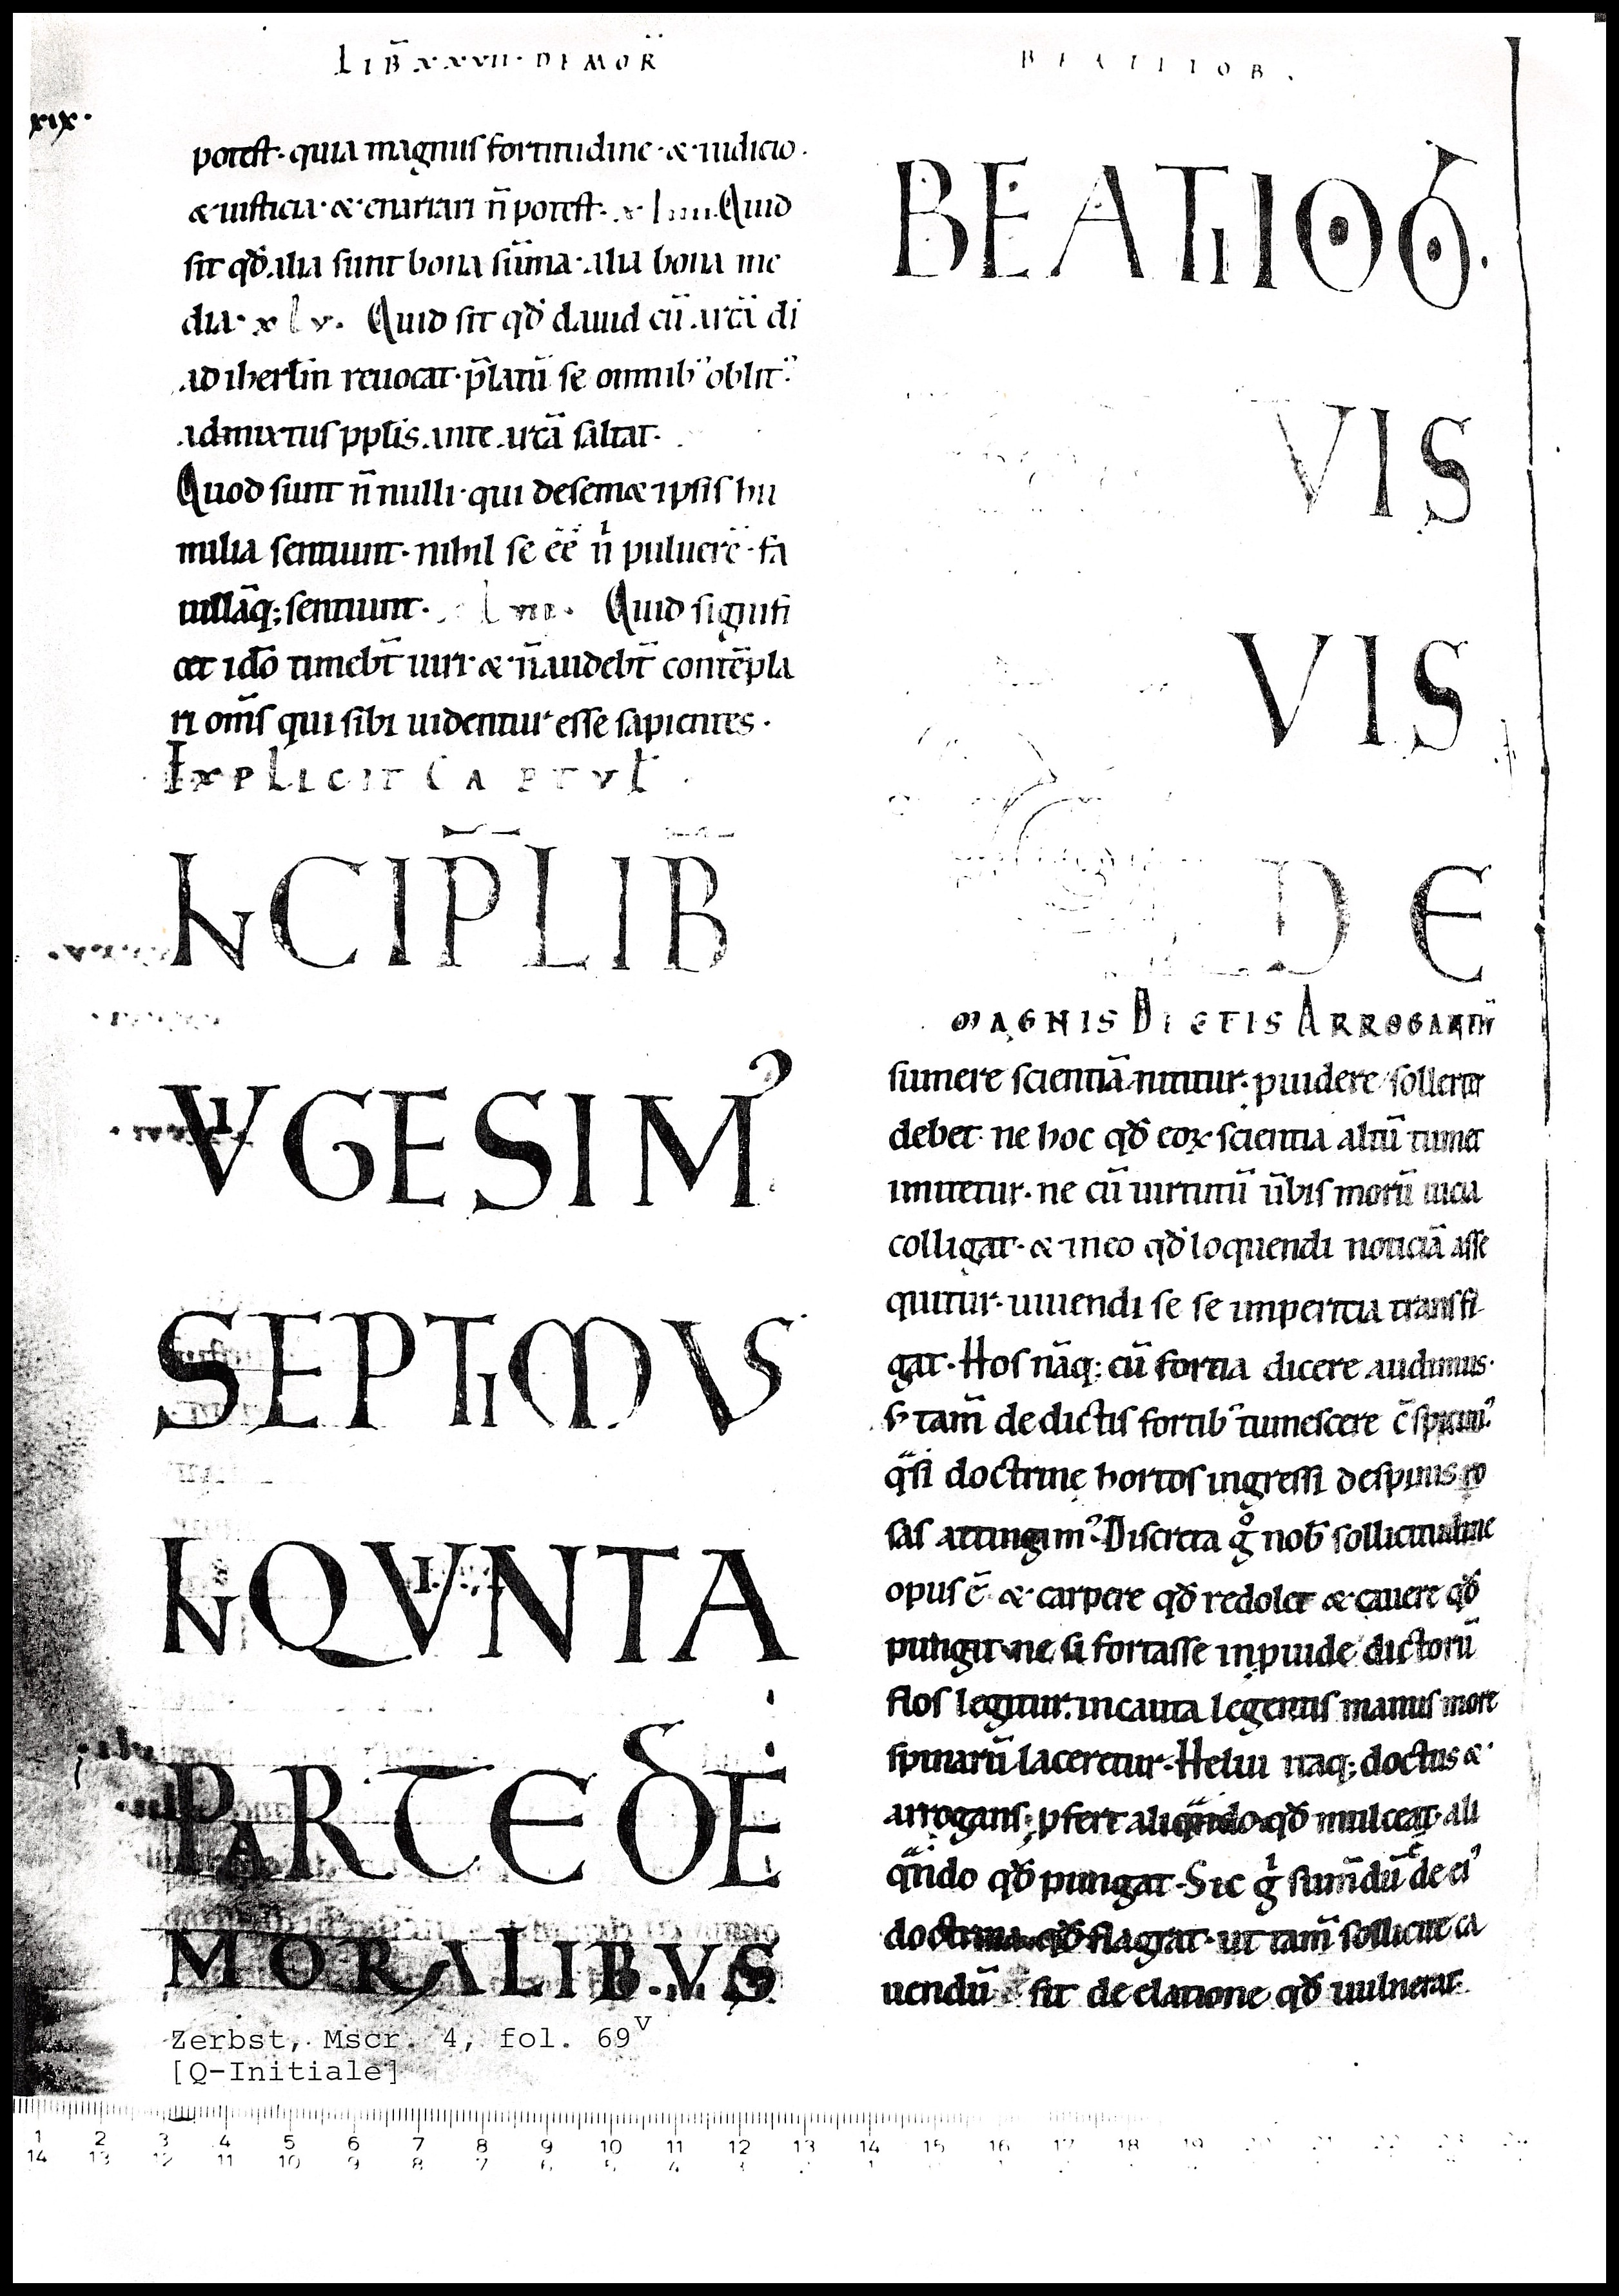 LIB̅ XXVII· DE MOR̅
BEATI IOB.
xix·
potest· quia magnus fortitudine· & iudicio·
& iusticia· & enarrari n̅ potest· xliiii. Quid
sit qđ alia sunt bona sūma· alia bona me
dia· xlv. Quid sit qđ dauid cū arcā di
ad ihertm̅ reuocat· p̅latū se omnib; oblit᷒
admixtus pplis ante arcā saltat·
Quod sunt n̅nulli· qui de semet ipsis hu
milia sentiunt· nihil se ēē nⁱ puluerē· fa
uillāq; sentiunt· Quid signifi
cet ido̅ timebt̅ uiri· & n̅ audebt̅ contēpla
ri om̅s qui sibi uidentur esse sapientes·
EXPLICIT CAPTVL̅
INCIP̅ LIB̅
VIGESIM᷒
SEPTIMVS
IN QVINTA
PARTE DE
MORALIBVS
BEATI IOB.
VIS
VIS
DE
MAGNIS DICTIS ARROGANTIV̅
sumere scientiā nititur· puidere sollerter
debet· ne hoc qđ eoꝝ scientia altū tumet
imitetur· ne cū uirtutū u̅bis morū uicia
colligat· & in eo qđ loquendi noticiā asse
quitur· uiuendi se se imperitia transfi
gat· Hos nāq; cū fortia dicere audimus·
s; tam̅ de dictis fortib; tumescere c̅spicim᷒
qᵃsi doctrinę hortos ingressi de spinis ro
sas attingim᷒· Discreta gͦ nob̅ sollicitudine
opus ē & carpere qđ redolet & cauere qđ
pungit· ne si fortasse inpuide dictorū
flos legitur· incauta legentis manus more
spinarū laceretur· Heliu naq; doctus &
arrogans· pfert aliqᵃndo qđ mulceat· ali
qᵃndo qđ pungat· Sic gⁱ sum̅dū ē de ei᷒
doctrina qđ flagrat· ut tam̅ sollicite ca
uendū sit de elatione qđ uulnerat·
Zerbst, Mscr. 4, fol. 69v
[Q-Initiale]
1 2 3 4 5 6 7 8 9 10 11 12 13 14 15 16 17 18 19
14 13 12 11 10 9 8 7 6 5 4 3